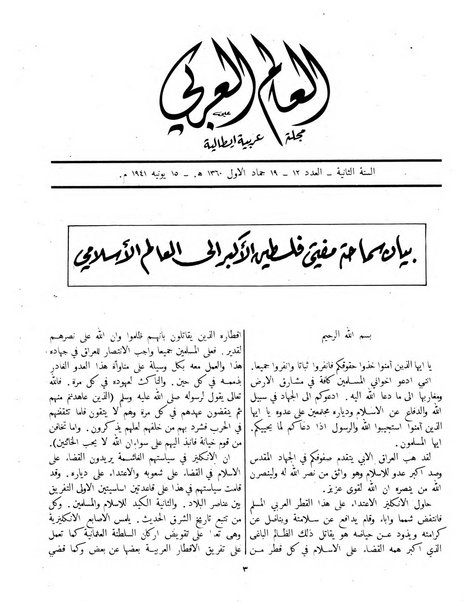 العالم العربي
مجلة عربية ايطالية
السنة الثانية - العدد ١٢ - ١٩ جماد الاول ١٣٦٠ هـ - ١٥ يونيه ١٩٤١ م.
بيان سماحة مفتي فلسطين الأكبر الى العالم الأسلامي
بسم الله الرحيم
يا ايها الذين آمنوا خذوا حقوقكم فانفروا ثباتا وانفروا جميعا.
انني ادعو اخواني المسلمين كافة في مشارق الارض
ومغاربها الى ما دعا الله اليه. ادعوكم الى الجهاد في سبيل
الله والدفاع عن الاسلام ودياره مجتمعين على عدوه يا ايها
الذين آمنوا استجيبوا لله والرسول اذا دعاكم لما يحييكم
ايها المسلمون.
لقد هب العراق الابي يتقدم صفوفكم في الجهاد المقدس
وصد اكبر عدو للاسلام وهو واثق من نصر الله له ولينصرن
الله من ينصره ان الله لقوي عزيز.
حاول الانكليز الاعتداء على هذا القطر العربي المسلم
فانتفض شمما واباء وقام يدافع عن سلامته ويناضل عن
كرامته ويذود عن حياضه هو يقاتل ذلك الظالم الباغي
الذي اكبر همه القضاء على الاسلام في كل قطر من
اقطاره الذين يقاتلون بانهم ظلموا وان الله على نصرهم
لقدير. فعلى المسلمين جميعا واجب الانتصار للعراق في جهاده
هذا والعمل معه بكل وسيلة على مناوأة هذا العدو الغادر
بذممه في كل حين. والناكث لعهوده في كل مرة. فالله
تعالى يقول لرسوله صلى الله عليه وسلم (الذين عاهدتم منهم
ثم ينقضون عهدهم في كل مرة وهم لا يتقون فاما تثقفنهم
في الحرب فشرد بهم من خلفهم لعلهم يذكرون. واما تخافن
من قوم خيانة فانبذ اليهم على سواء ان الله لا يحب الخائنين).
ان الانكليز في سياستهم الغاشمة يريدون القضاء على
الاسلام في القضاء على شعوبه والاعتداء على دياره. وقد
قامت سياستهم في هذا على قاعدتين اساسيتين الاولى التفريق
بين عناصر البلاد. والثانية الكيد للاسلام والمسلمين. وكل
من تتبع تاريخ الشرق الحديث. يلمس الاصابع الانكليزية
وهي تعمل على تقويض اركان السلطنة العثمانية كما تعمل
على تفريق الاقطار العربية بعضها عن بعض وكما قضي
٣